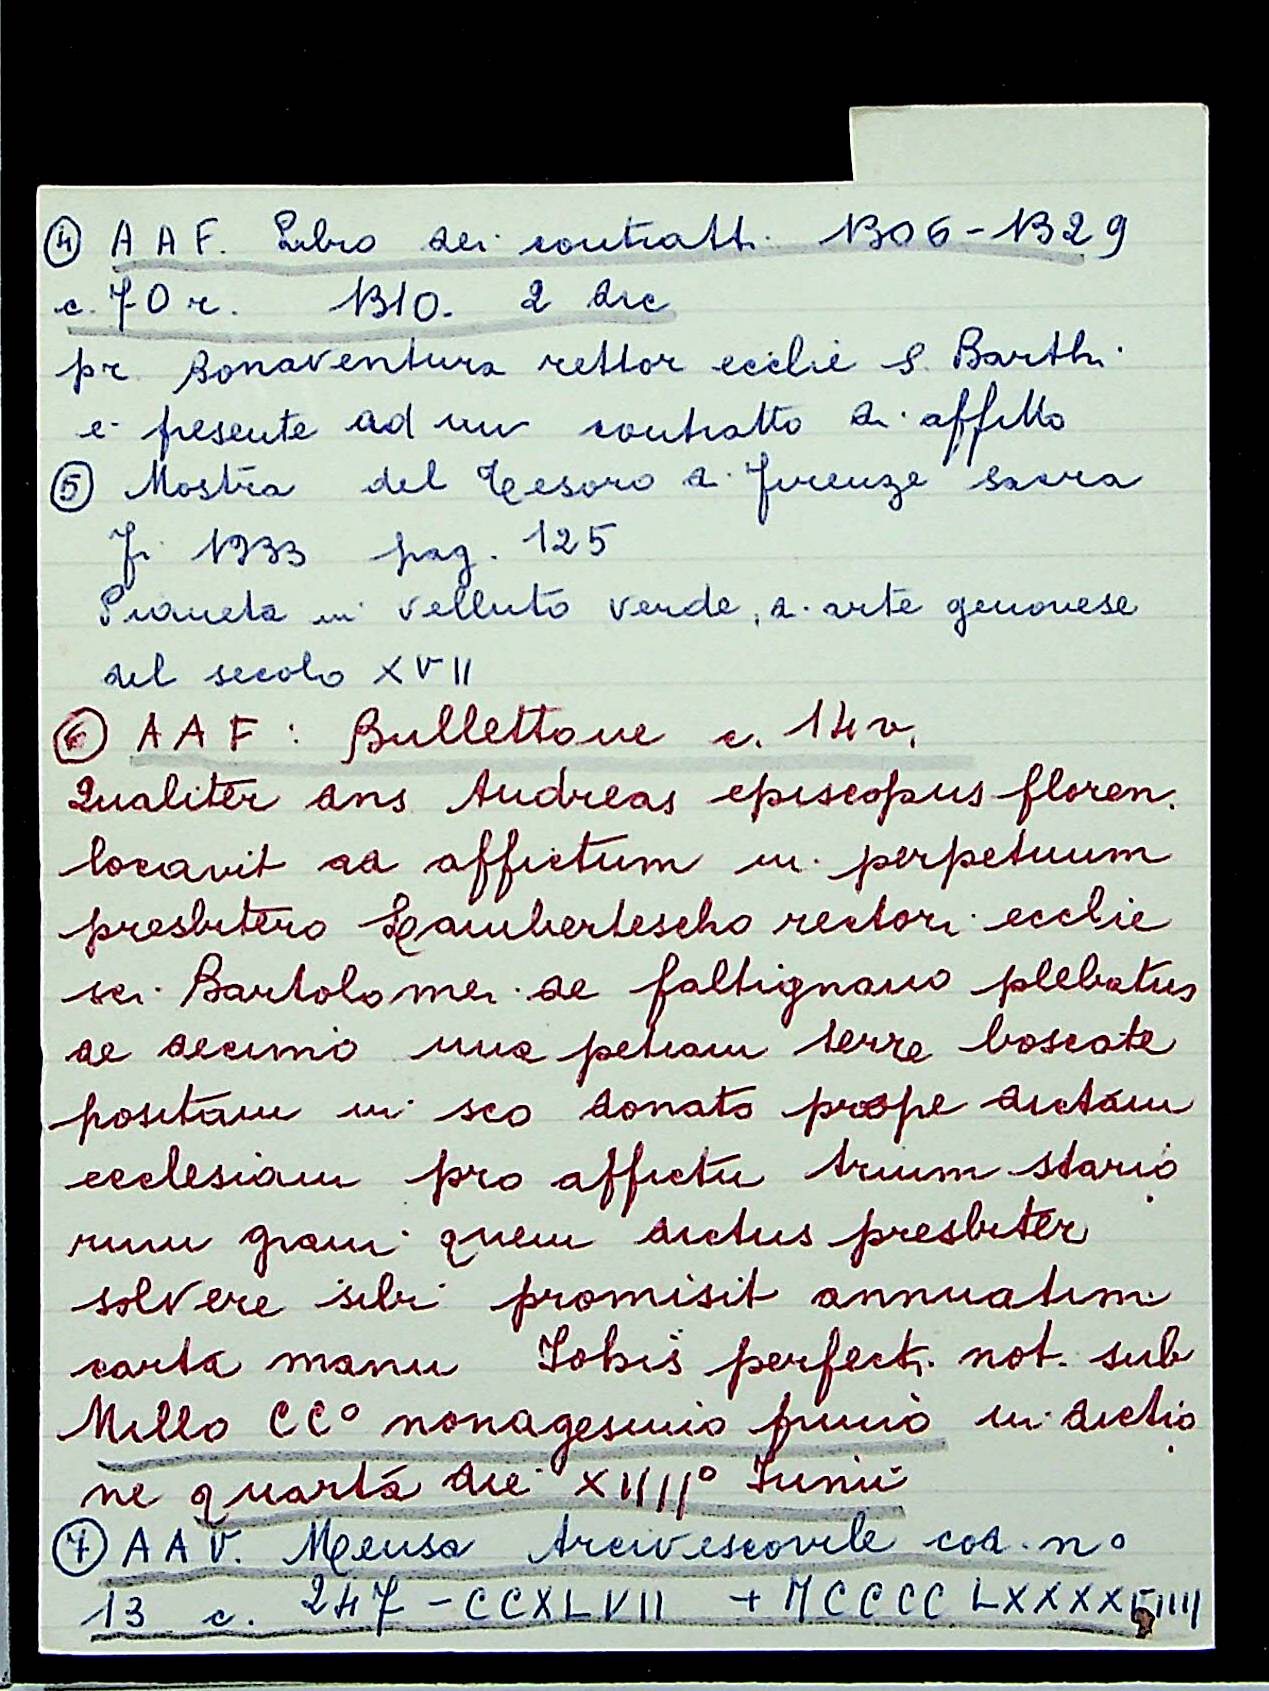 ④ A A F. Libro dei contratti 1306-1329
c. 70 r. 1310. 2 dic
pr Bonaventura rettor ecclie S. Barth.
e presente ad un contratto di affitto
⑤ Mostra del Tesoro di Firenze sacra
Fi 1933 pag. 125
Pianeta in velluto verde, di arte genovese
del secolo XVII
⑥ A A F: Bullettone c. 14 v.
Qualiter dns Andreas episcopus floren.
locavit ad affictum in perpetuum
presbitero Lambertescho rectori ecclie
sci Bartolomei de faltignano plebatus
de decimo una petiam terre boscate
positam in sco donato prope dictam
ecclesiam pro affictu trium stario
rum grani quem dictus presbiter
solvere sibi promisit annuatim
carta manu Iohis perfecti not. sub
Millo CC° nonagesimo primo in dictio
ne quarta die XIIII° Iunii
⑦ A A V. Mensa Arcivescovile cod. n°
13 c. 247 - CCXLVII + MCCCC LXXXX